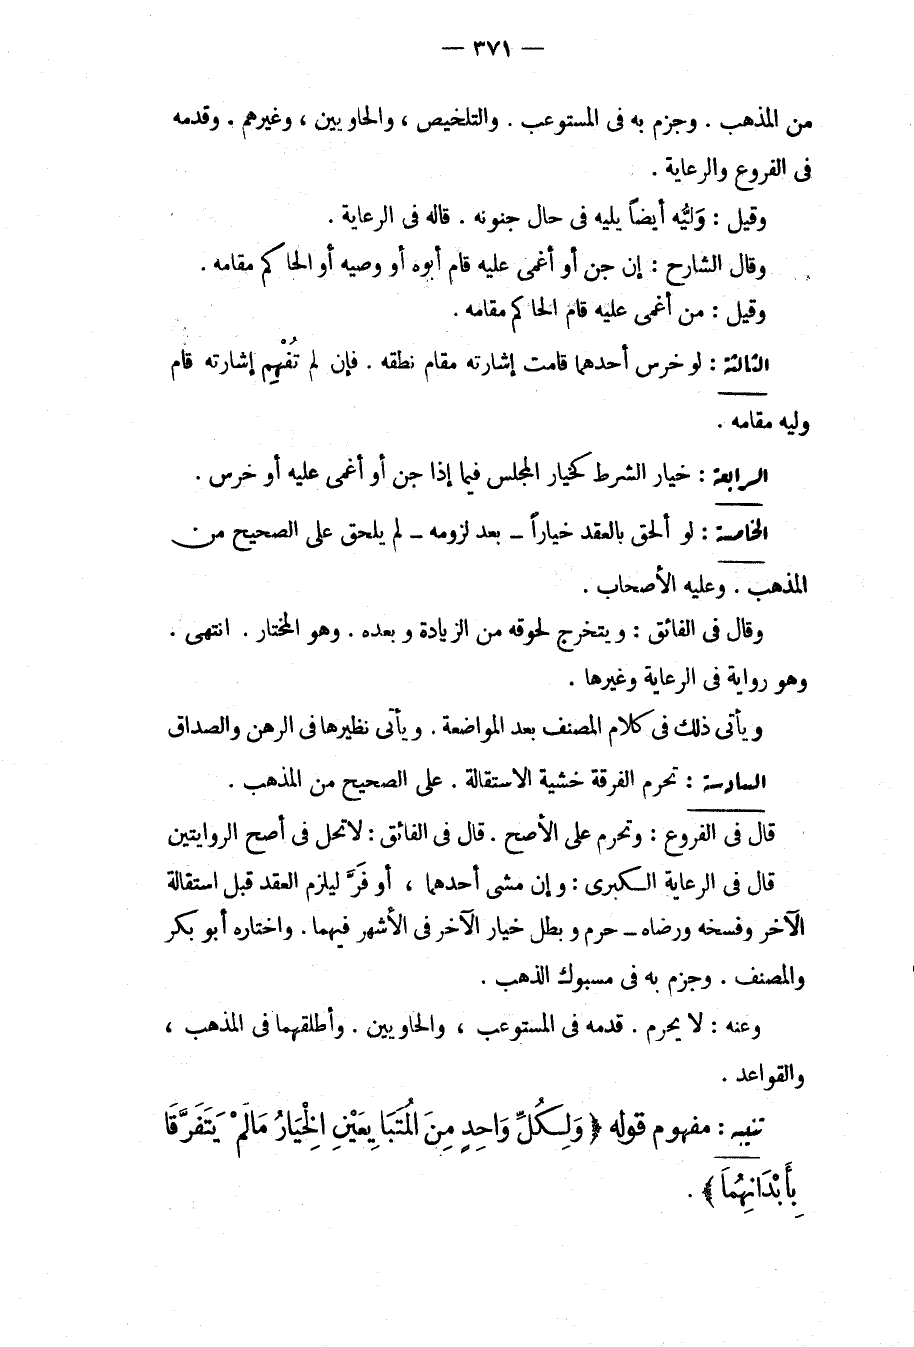 — ٣٧١ —
من المذهب . وجزم به فى المستوعب . والتلخيص ، والحاويين ، وغيرهم . وقدمه
فى الفروع والرعاية .
وقيل : وَليُّه أيضاً يليه فى حال جنونه . قاله فى الرعاية .
وقال الشارح : إن جن أو أغمى عليه قام أبوه أو وصيه أو الحاكم مقامه .
وقيل : من أغمى عليه قام الحاكم مقامه .
الثالثة : لو خرس أحدهما قامت إشارته مقام نطقه . فإن لم تُفْهم إشارته قام
وليه مقامه .
الرابعة : خيار الشرط كخيار المجلس فيما إذا جن أو أغمى عليه أو خرس .
الخامسة : لو ألحق بالعقد خياراً – بعد لزومه – لم يلحق على الصحيح من
المذهب . وعليه الأصحاب .
وقال فى الفائق : ويتخرج لحوقه من الزيادة وبعده . وهو المختار . انتهى .
وهو رواية فى الرعاية وغيرها .
ويأتى ذلك فى كلام المصنف بعد المواضعة . ويأتى نظيرها فى الرهن والصداق
السادسة : تحرم الفرقة خشية الاستقالة . على الصحيح من المذهب .
قال فى الفروع : وتحرم على الأصح . قال فى الفائق : لا تحل فى أصح الروايتين
قال فى الرعاية الكبرى : وإن مشى أحدهما ، أو فَرَّ ليلزم العقد قبل استقالة
الآخر وفسخه ورضاه – حرم وبطل خيار الآخر فى الأشهر فيهما . واختاره أبو بكر
والمصنف . وجزم به فى مسبوك الذهب .
وعنه : لا يحرم . قدمه فى المستوعب ، والحاويين . وأطلقهما فى المذهب ،
والقواعد .
تنبيه : مفهوم قوله ﴿ وَلِكُلِّ وَاحِدٍ مِنَ المُتَبَايِعَيْنِ الْخِيَارُ مَالَمْ يَتَفَرَّقَا
بِأَبْدَانِهِمَا ﴾ .